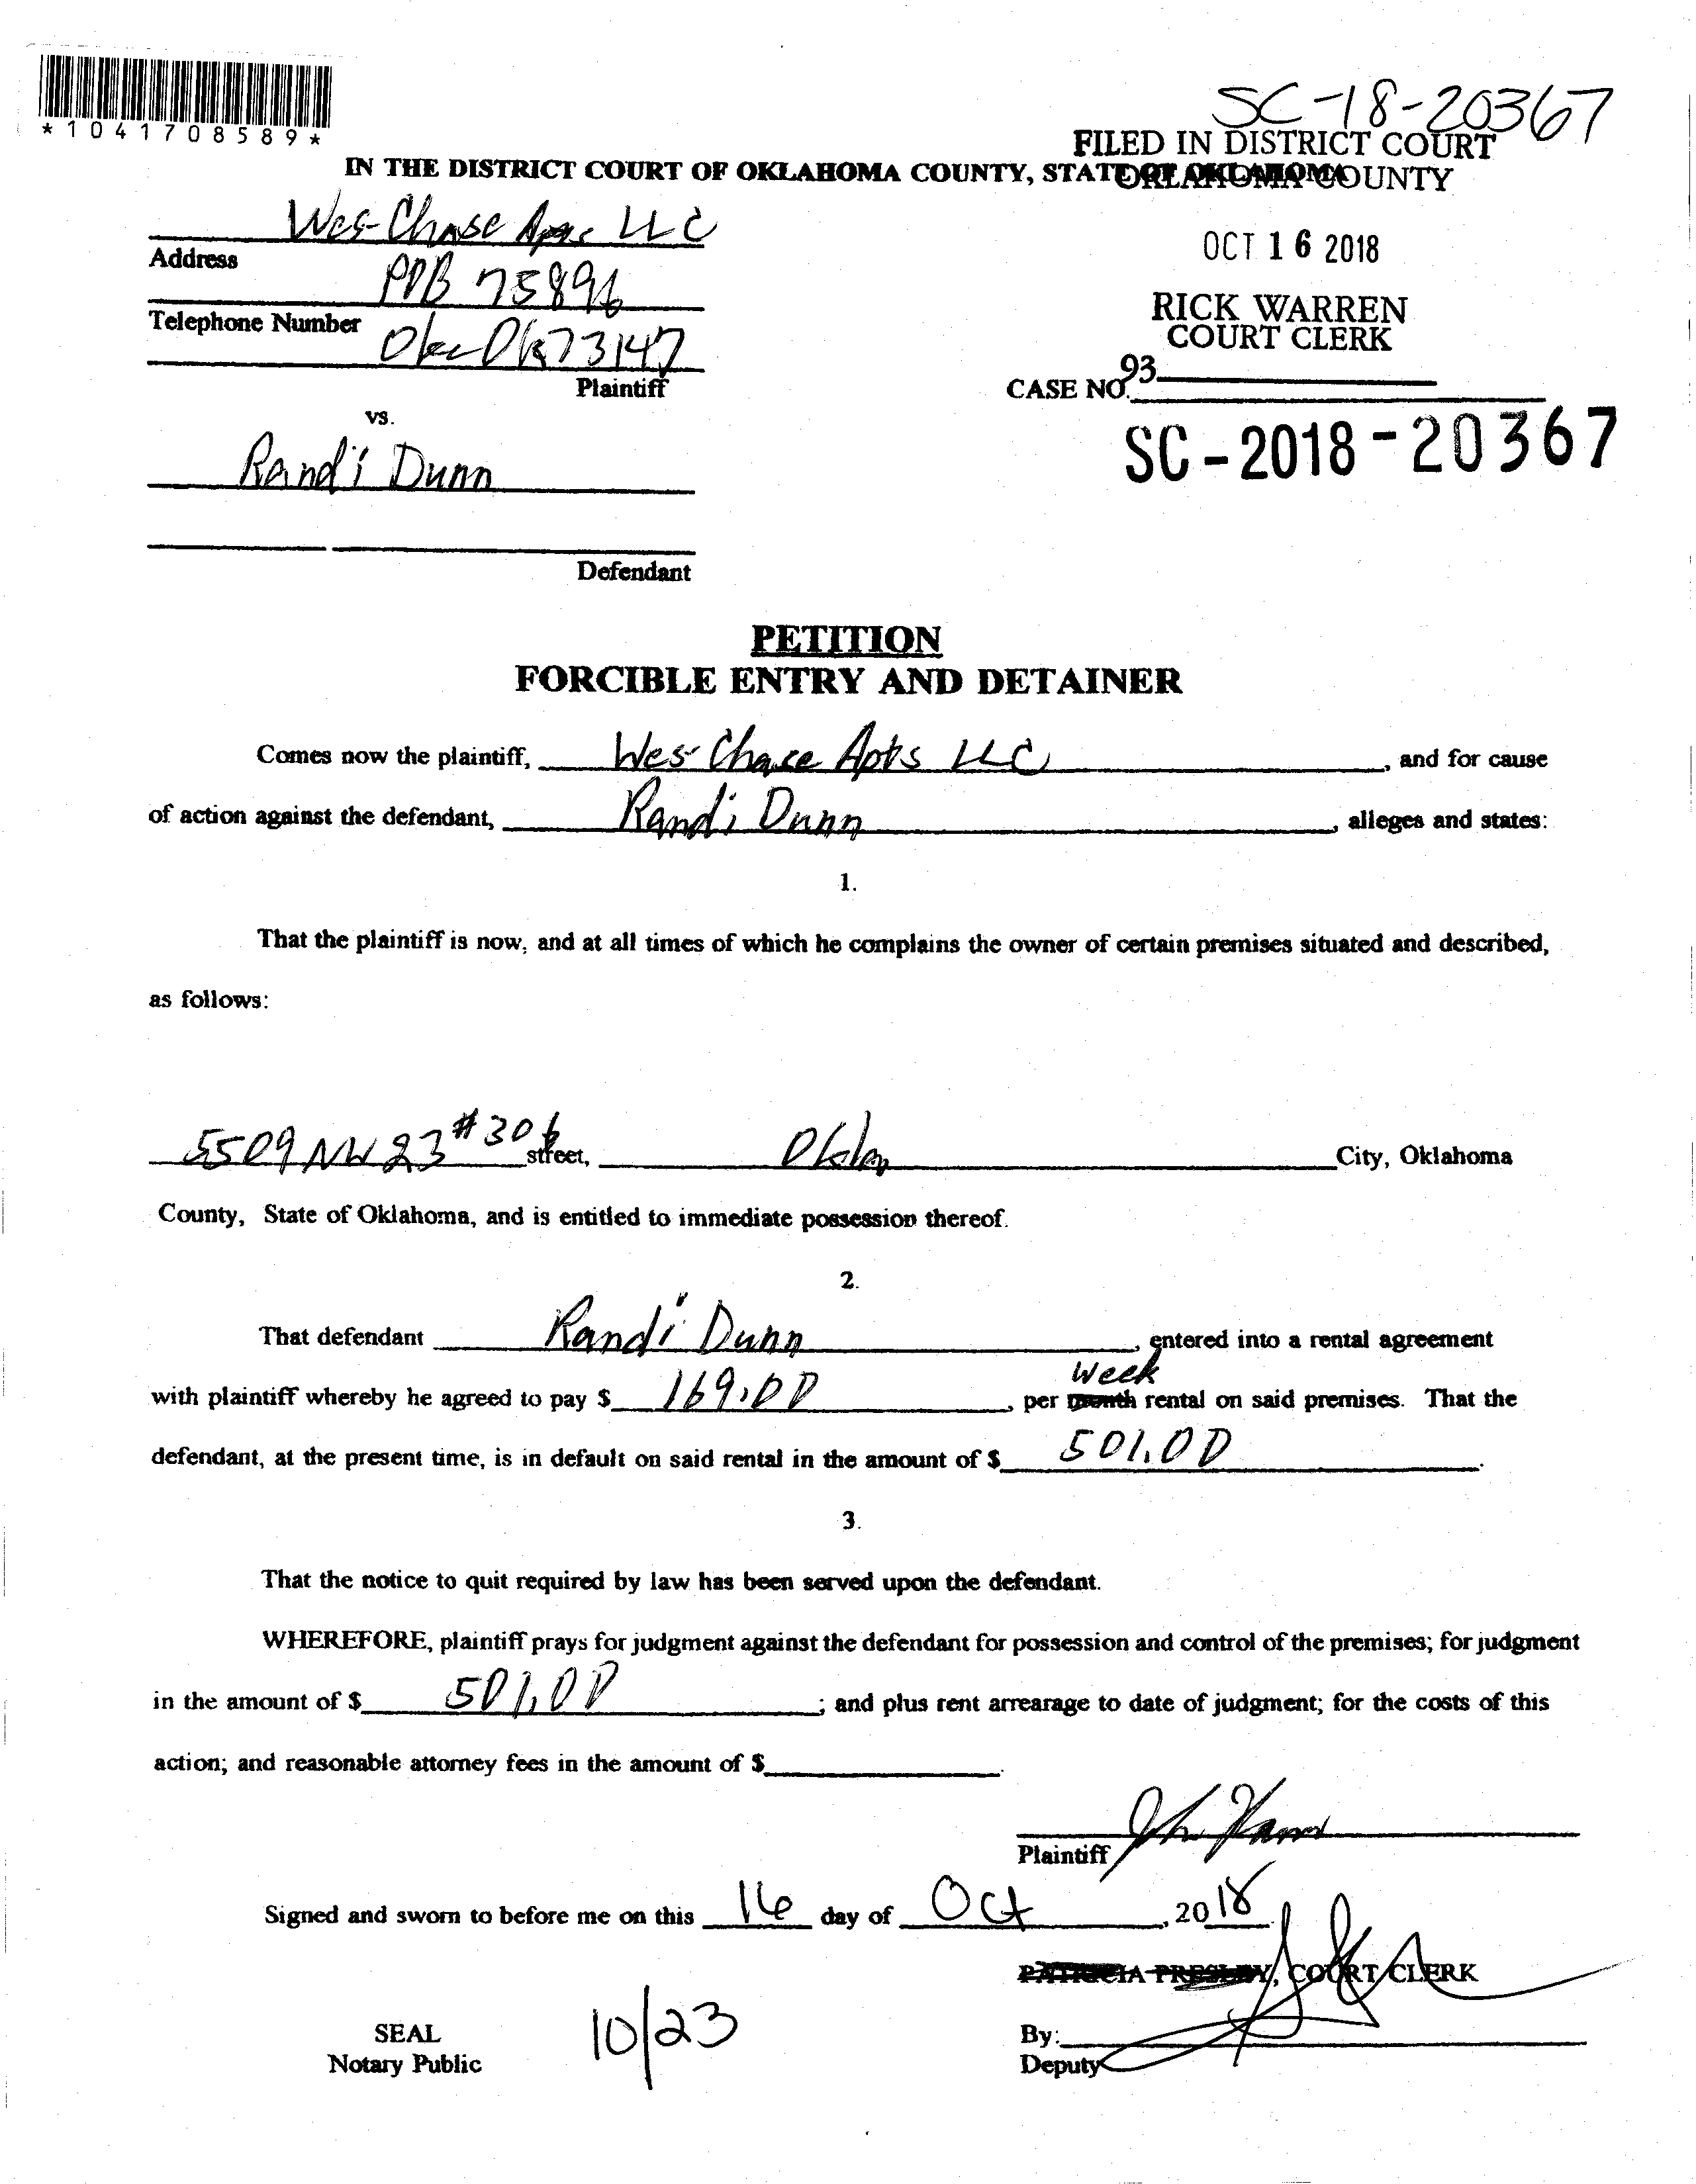 *1041708589*
SC-18-20367
FILED IN DISTRICT COURT
OKLAHOMA COUNTY
IN THE DISTRICT COURT OF OKLAHOMA COUNTY, STATE OF OKLAHOMA
Wes Chase Apts LLC
OCT 16 2018
Address
POB 75896
RICK WARREN
COURT CLERK
Telephone Number
Okc Ok 73147
Plaintiff
93
CASE NO.
vs.
SC-2018-20367
Randi Dunn
Defendant
PETITION
FORCIBLE ENTRY AND DETAINER
Comes now the plaintiff, Wes Chase Apts LLC, and for cause
of action against the defendant, Randi Dunn, alleges and states:
1.
That the plaintiff is now, and at all times of which he complains the owner of certain premises situated and described,
as follows:
5509 NW 23 #306 street, City, Oklahoma
County, State of Oklahoma, and is entitled to immediate possession thereof.
2.
That defendant Randi Dunn, entered into a rental agreement
week
with plaintiff whereby he agreed to pay $ 169.00, per month rental on said premises. That the
defendant, at the present time, is in default on said rental in the amount of $ 501.00.
3.
That the notice to quit required by law has been served upon the defendant.
WHEREFORE, plaintiff prays for judgment against the defendant for possession and control of the premises; for judgment
in the amount of $ 501.00; and plus rent arrearage to date of judgment; for the costs of this
action; and reasonable attorney fees in the amount of $
Plaintiff
Signed and sworn to before me on this 16 day of Oct, 2018
PATRICIA PRESLEY, COURT CLERK
SEAL
Notary Public
10/23
By:
Deputy